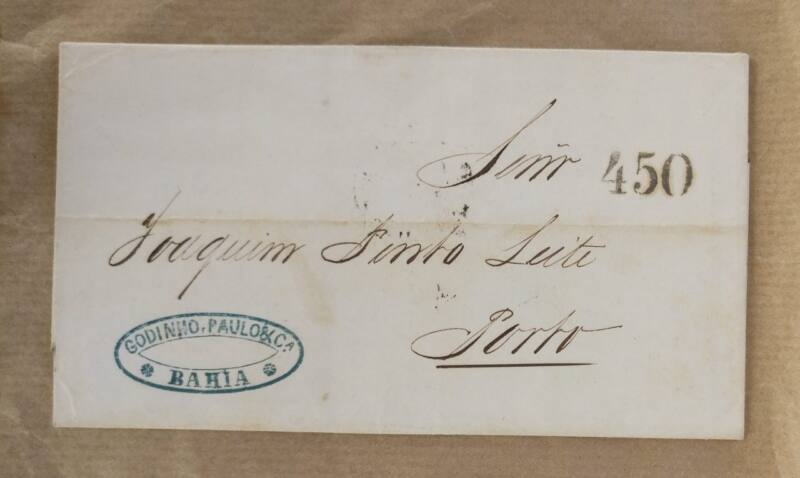 Senr 450
Joaquim Pinto Leite
Porto
GODINHO, PAULO & CA
BAHIA